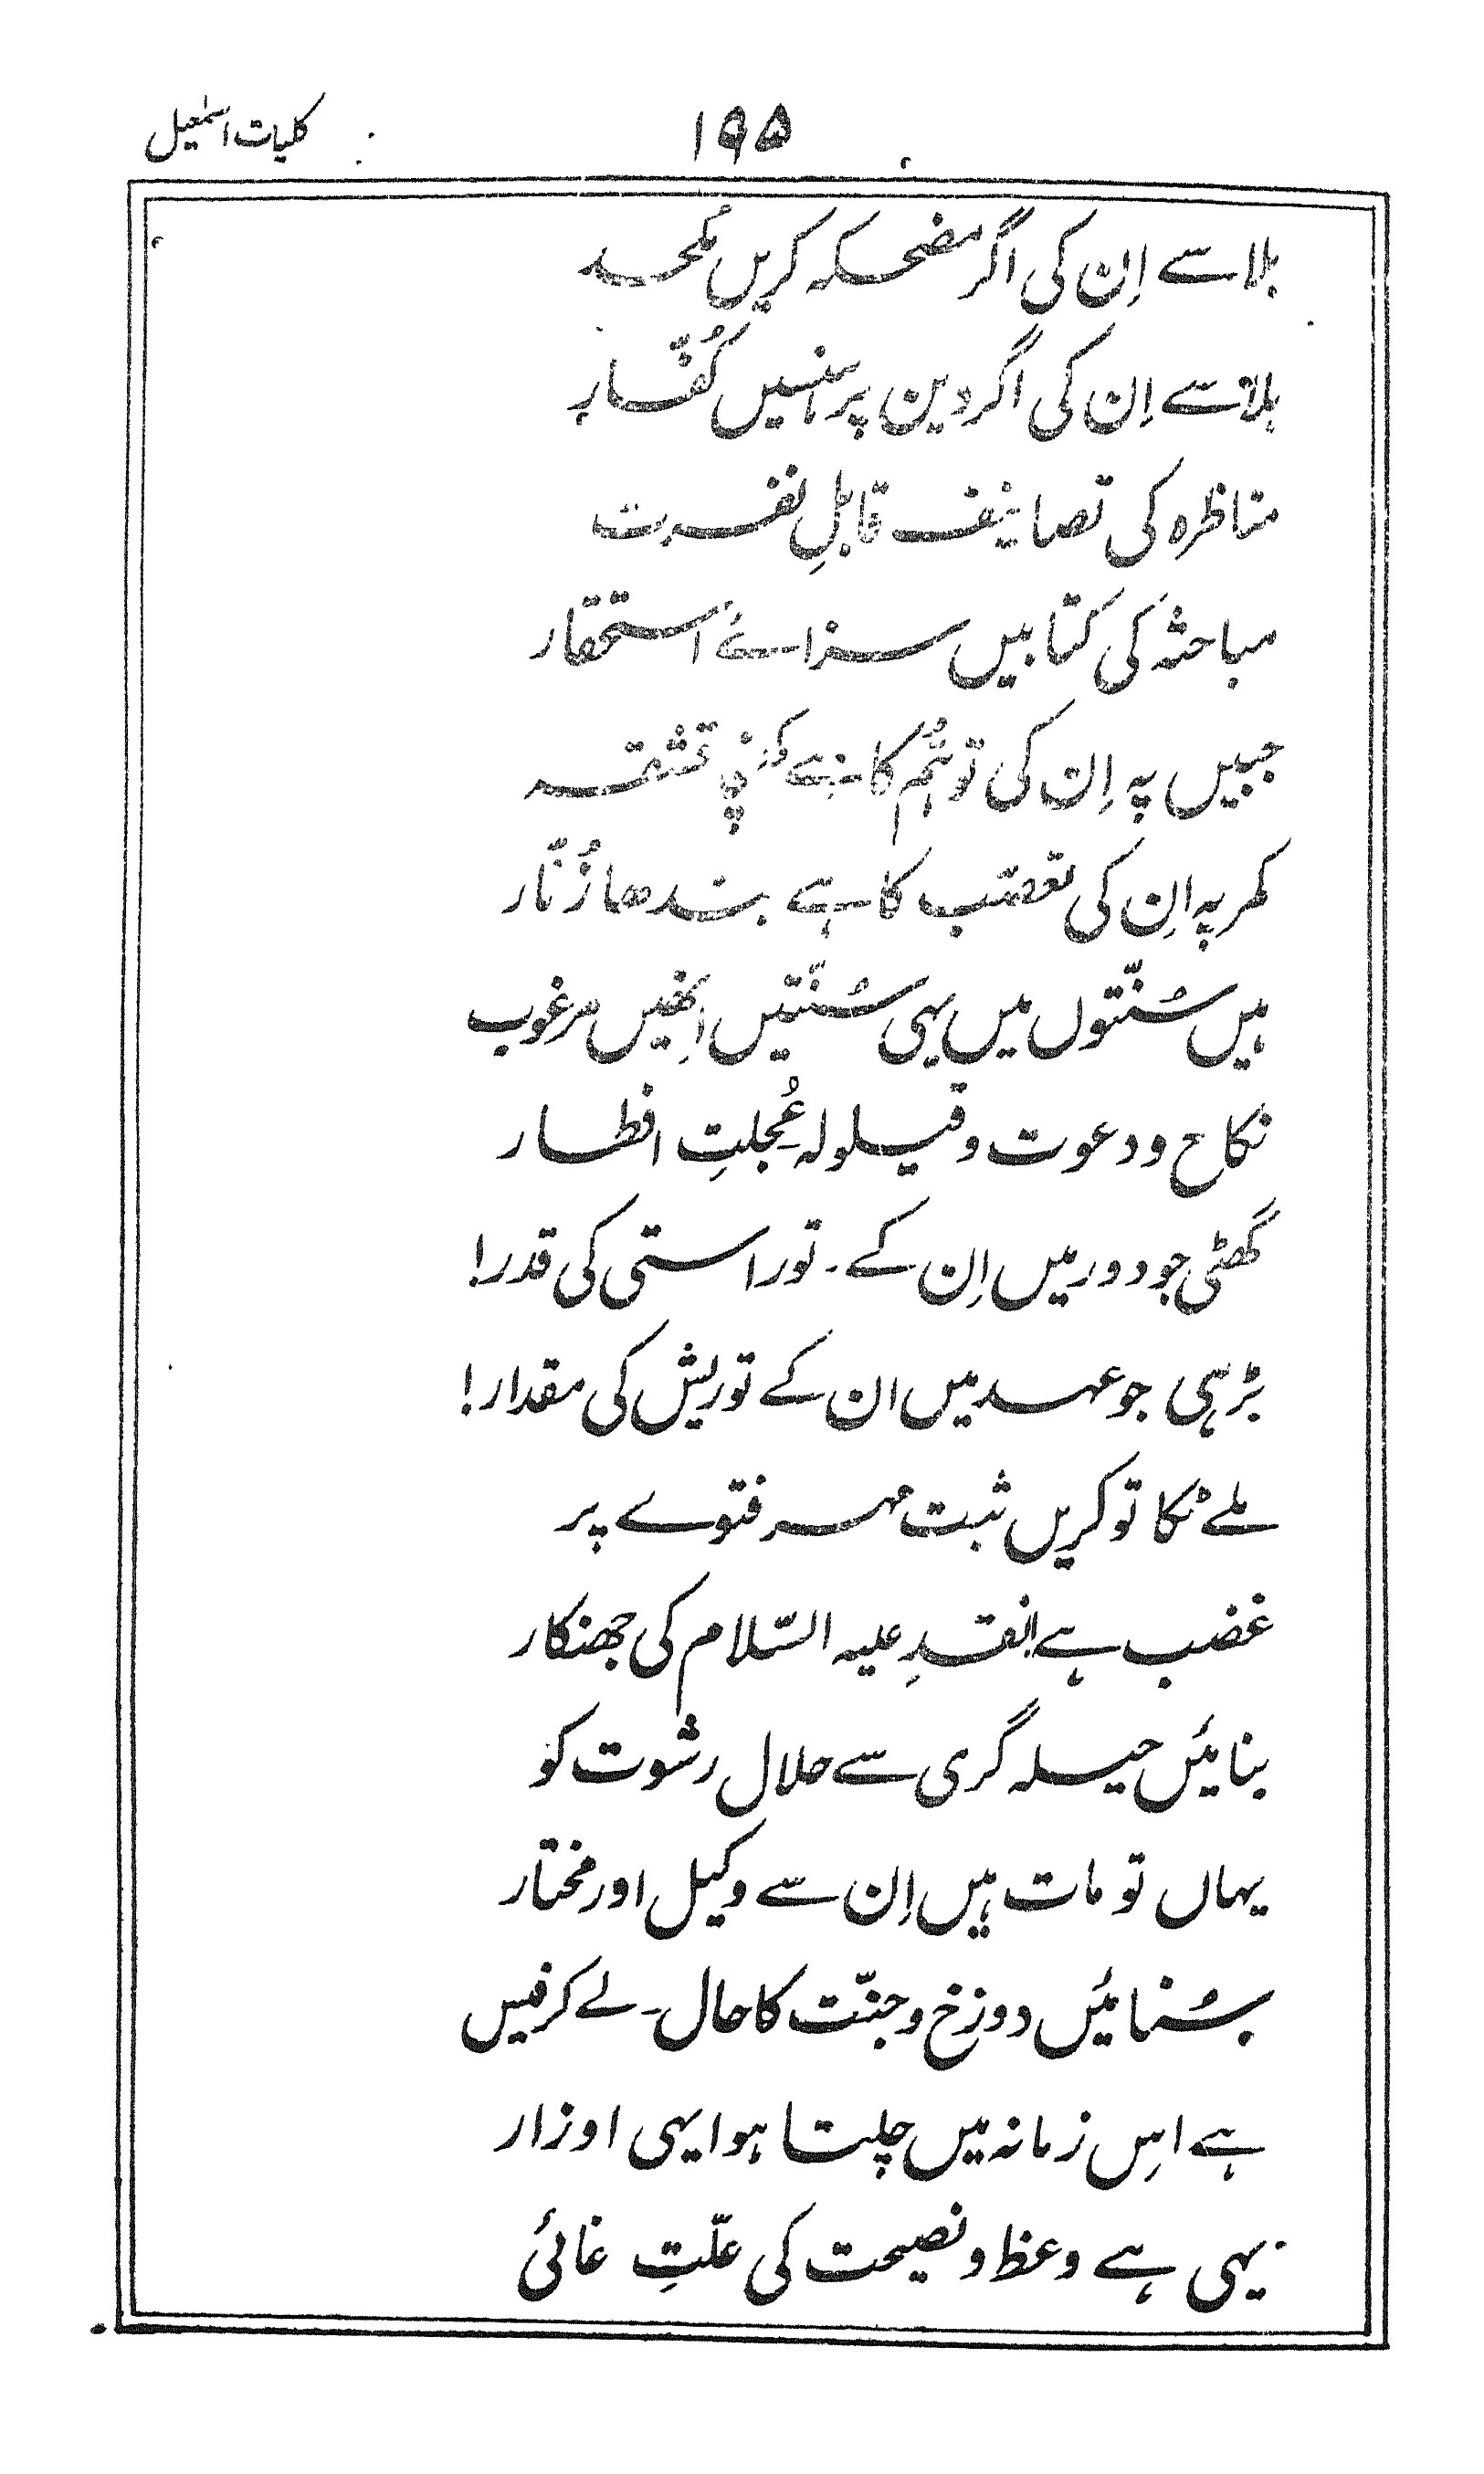 کلیات اسمٰعیل
۱۹۵
بلا سے اِن کی اگر مضحکہ کریں مُلحد
بلا سے اِن کی اگر دین پر ہنسیں کُفّار
مناظرہ کی تصانیف قابلِ نفرت
مباحثہ کی کتابیں سزائے استحقار
جبیں پہ اِن کی توہُّم کا ہے تشقہ
کمر پہ اِن کی تعصّب کا ہے بندھا زُنّار
ہیں سُنّتوں میں یہی سُنّتیں اِنھیں مرغوب
نکاح و دعوت و قیلولہ عُجلتِ افطار
گھٹی جو دور میں اِن کے ۔ تو راستی کی قدر!
بڑہی جو عہد میں ان کے تو ریش کی مقدار!
ملے ٹکا تو کریں ثبت مہر فتوے پر
غضب ہے نقدِ علیہ السّلام کی جھنکار
بنائیں حیلہ گری سے حلال رشوت کو
یہاں تو مات ہیں اِن سے وکیل اور مختار
سُنائیں دوزخ و جنّت کا حال ۔ لے کر فیس
ہے اِس زمانہ میں چلتا ہوا یہی اوزار
یہی ہے وعظ و نصیحت کی علّتِ غائی